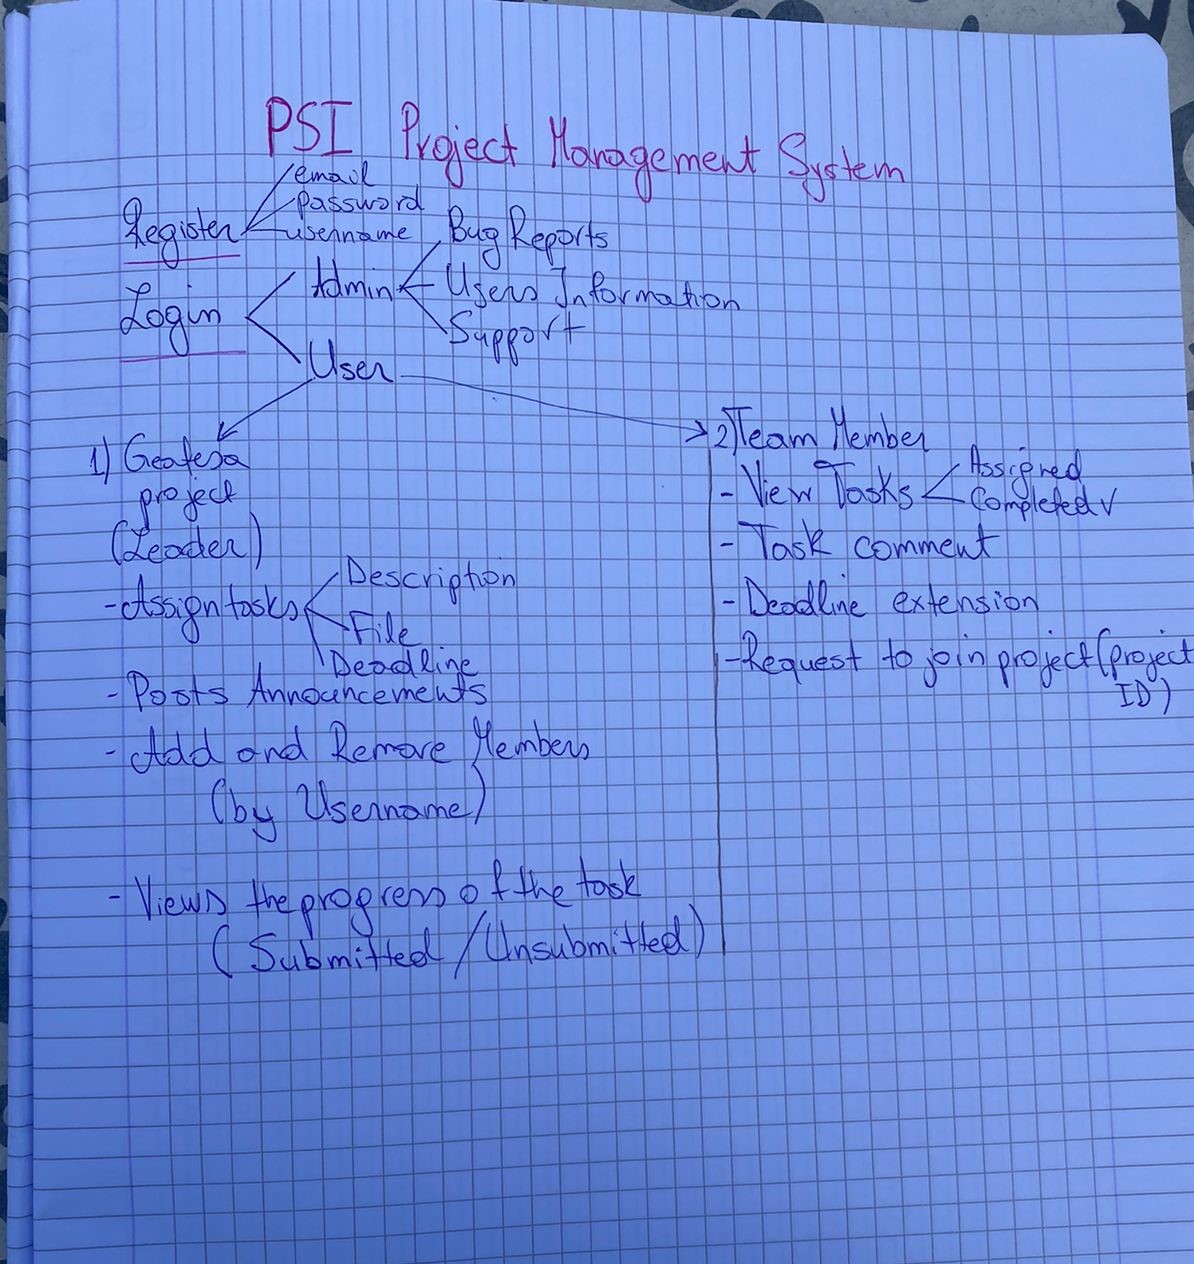 PSI Project Management System
email
password
Register username
Bug Reports
Admin Users Information
Login
Support
User
1) Createsa
project
(Leader)
- Assign tasks
Description
File
Deadline
- Posts Announcements
- Add and Remove Members
(by Username)
- Views the progress of the task
(Submitted / Unsubmitted)
2) Team Member
- View Tasks
Assigned
Completed ✓
- Task comment
- Deadline extension
- Request to join project (project
ID)